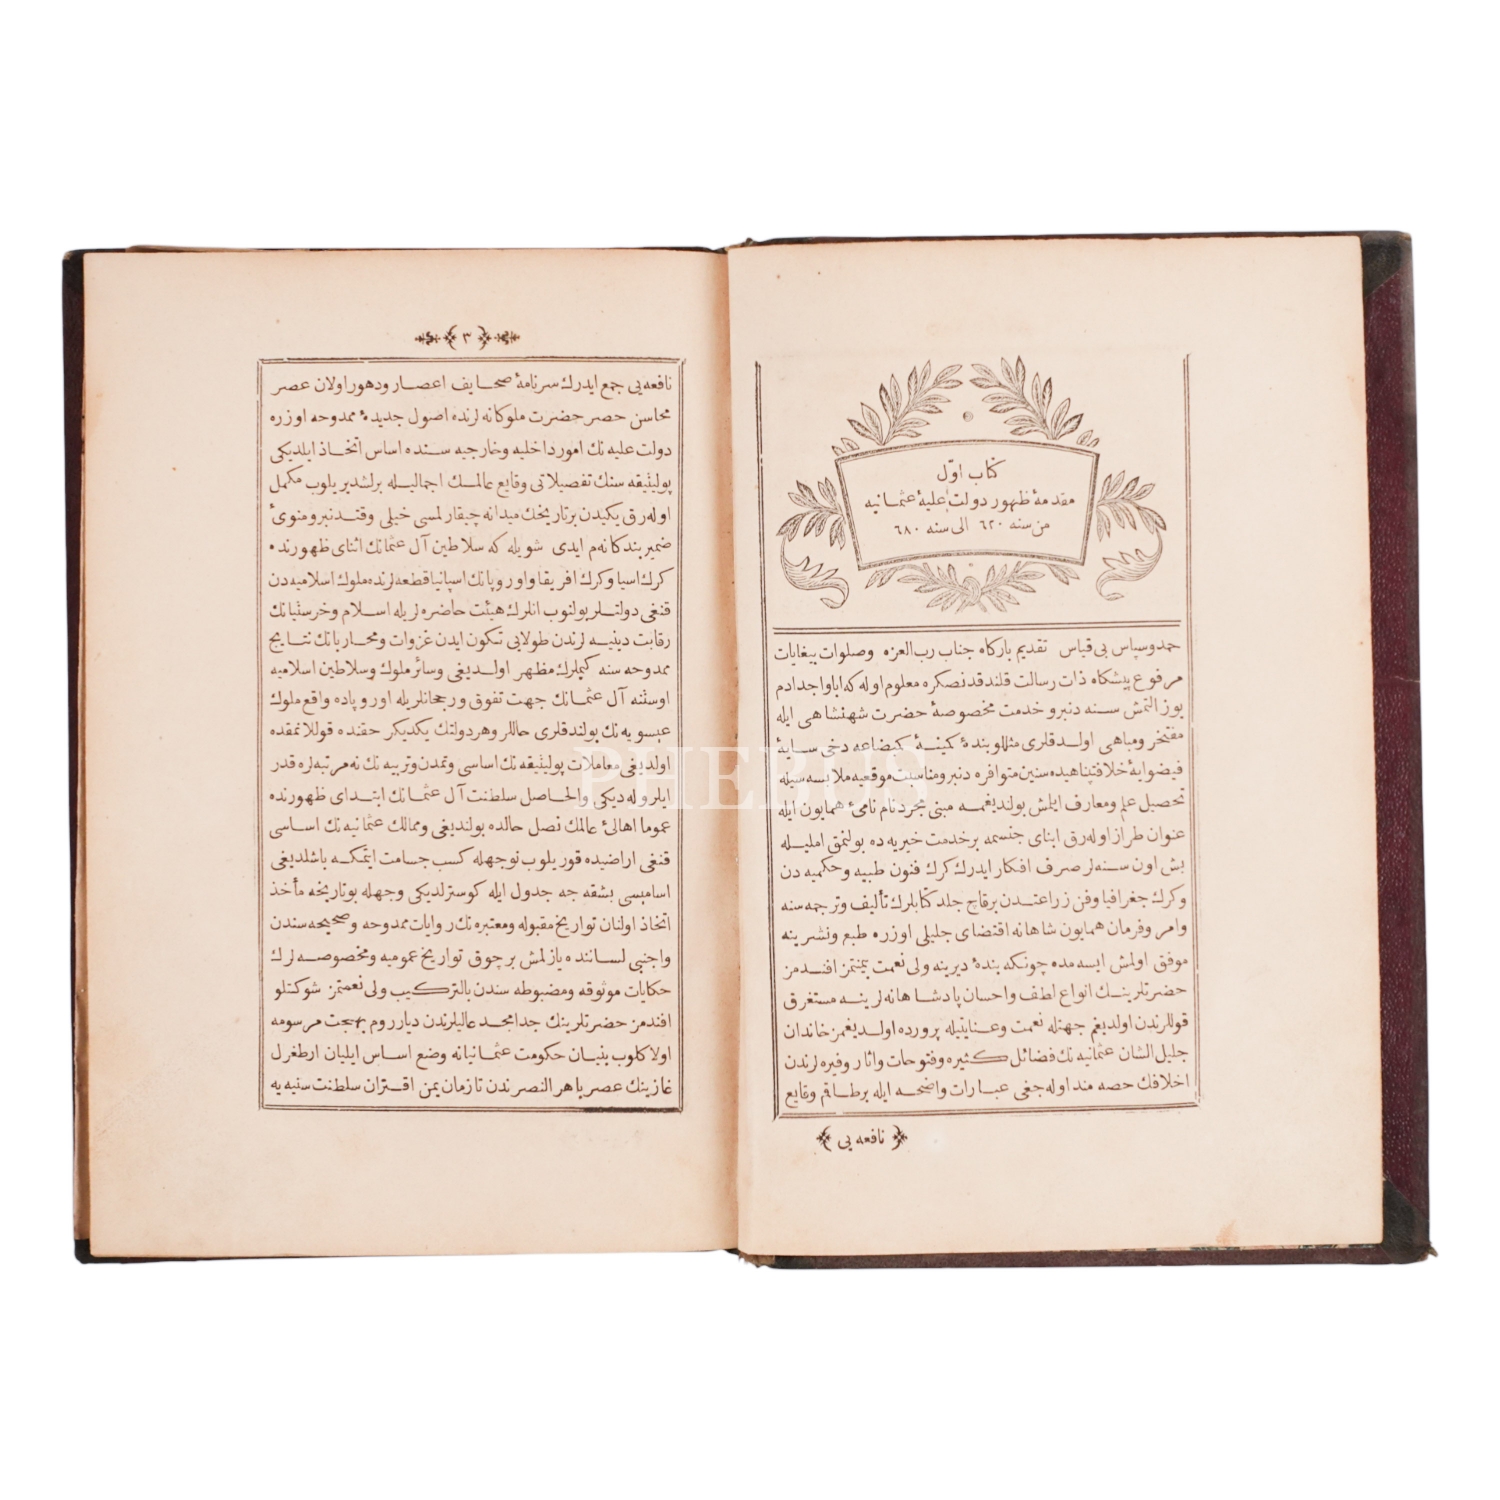 كتاب اوّل
مقدمهٔ ظهور دولت علیهٔ عثمانیه
من سنه ٦٢٠ الى سنه ٦٨٠
حمد و سپاس بی قیاس تقدیم بارکاه جناب رب العزه وصلوات بیغایات
مرفوع پیشکاه ذات رسالت قلندقدنصکره معلوم اوله که ابا واجدادم
یوز التمش سنه دنبرو خدمت مخصوصهٔ حضرت شهنشاهی ایله
مفتخر ومباهی اولدقلری مثللو بندهٔ کمینهٔ کمبضاعه دخی سایهٔ
فیضوایهٔ خلافتپناهیده سنین متوافره دنبرو مناسبت موقعیه ملابسه سیله
تحصیل علم ومعارف ایلمش بولندیغمه مبنی مجرد نام نامیٔ همایون ایله
عنوان طراز اوله رق ابنای جنسمه برخدمت خیریه ده بولنمق املیله
بش اون سنه لر صرف افکار ایدرك کرك فنون طبیه وحکمیه دن
وکرك جغرافیا وفن زراعتدن برقاچ جلد کتابلرك تألیف وترجمه سنه
وامر وفرمان همایون شاهانه اقتضای جلیلی اوزره طبع ونشرینه
موفق اولمش ایسه مده چونکه بندهٔ دیرینه ولی نعمت بیمنتمز افندمز
حضرتلرینك انواع لطف واحسان پادشاهانه لرینه مستغرق
قوللرندن اولدیغم جهتله نعمت وعنایتیله پرورده اولدیغمز خاندان
جلیل الشان عثمانیه نك فضائل کثیره وفتوحات واثار وفیره لرندن
اخلافك حصه مند اوله جغی عبارات واضحه ایله برطاقم وقایع
نافعه یی
٣
نافعه یی جمع ایدرك سرنامهٔ صحایف اعصار ودهور اولان عصر
محاسن حصر حضرت ملوکانه لرنده اصول جدیدهٔ ممدوحه اوزره
دولت علیه نك امور داخلیه وخارجیه سنده اساس اتخاذ ایلدیکی
پولیتیقه سنك تفصیلاتی وقایع عالمك اجمالیله برلشدیریلوب مکمل
اوله رق یکیدن برتاریخك میدانه چیقارلمسی خیلی وقتدنبرو منویٔ
ضمیر بندکانه م ایدی شویله که سلاطین آل عثمانك اثنای ظهورنده
کرك اسیا وکرك افریقا واوروپانك اسپانیا قطعه لرنده ملوك اسلامیه دن
قنغی دولتلر بولنوب انلرك هیئت حاضره لریله اسلام وخرستیانك
رقابت دینیه لرندن طولایی تکون ایدن غزوات ومحارباتك نتایج
ممدوحه سنه کیملرك مظهر اولدیغی وسائر ملوك وسلاطین اسلامیه
اوستنه آل عثمانك جهت تفوق ورجحانلریله اوروپاده واقع ملوك
عیسویه نك بولندقلری حاللر وهر دولتك یکدیکر حقنده قوللانمقده
اولدیغی معاملات پولیتیقه نك اساسی وتمدن وتربیه نك نه مرتبه لره قدر
ایلروله دیکی والحاصل سلطنت آل عثمانك ابتدای ظهورنده
عموما اهالیٔ عالمك نصل حالده بولندیغی وممالك عثمانیه نك اساسی
قنغی اراضیده قوریلوب نوجهله کسب جسامت ایتمکه باشلدیغی
اسامیسی بشقه جه جدول ایله کوسترلدیکی وجهله بوتاریخه مأخذ
اتخاذ اولنان تواریخ مقبوله ومعتبره نك روایات ممدوحه وصحیحه سندن
واجنبی لسانده یازلمش برچوق تواریخ عمومیه ومخصوصه لرك
حکایات موثوقه ومضبوطه سندن بالترکیب ولی نعمتمز شوکتلو
افندمز حضرتلرینك جد امجد عالیلرندن دیار روم بهجت مرسومه
اولا کلوب بنیان حکومت عثمانیانه وضع اساس ایلیان ارطغرل
غازینك عصر باهر النصرندن تا زمان یمن اقتران سلطنت سنیه یه
PHEBUS